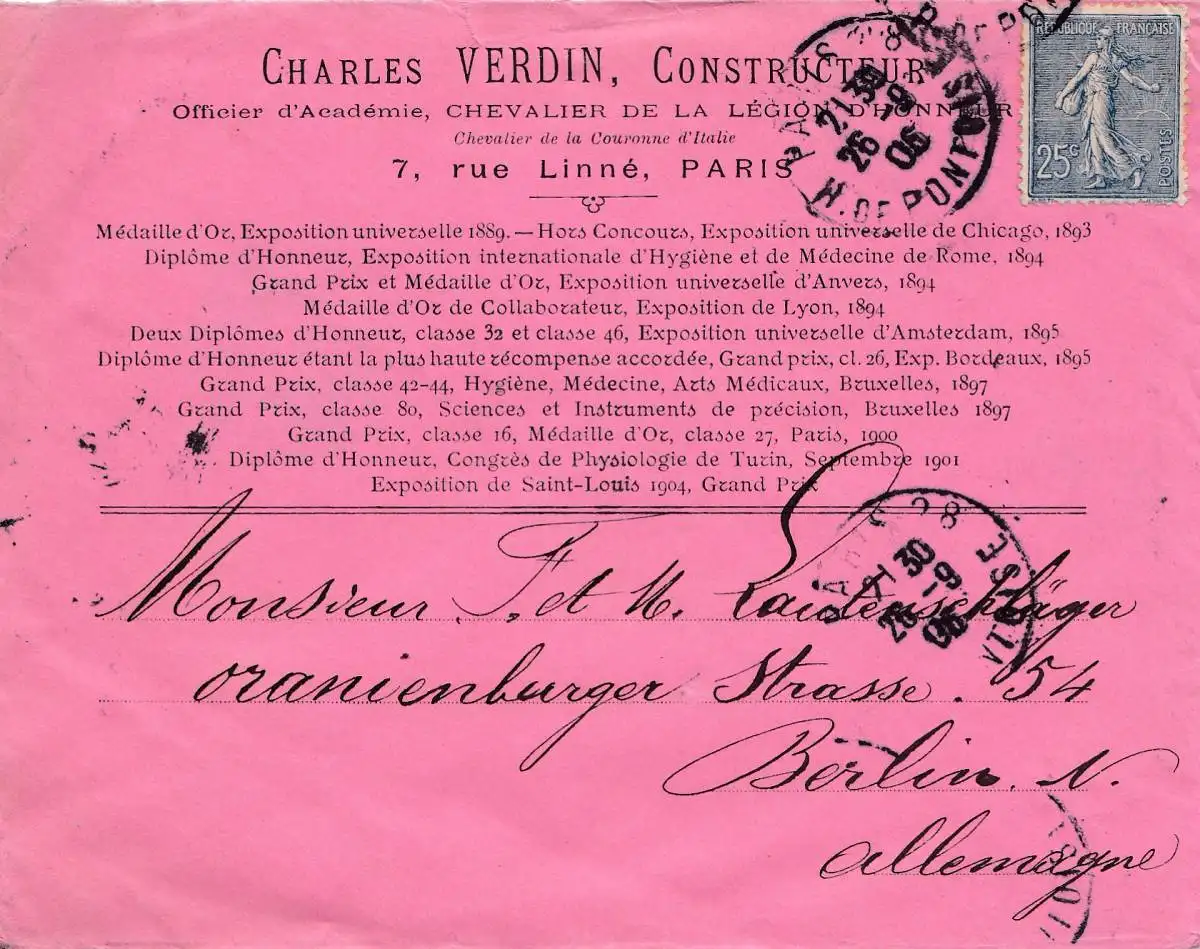 CHARLES VERDIN, CONSTRUCTEUR
Officier d'Académie, CHEVALIER DE LA LÉGION D'HONNEUR
Chevalier de la Couronne d'Italie
7, rue Linné, PARIS
RÉPUBLIQUE FRANÇAISE
25c
POSTES
PARIS 28
21 30
26 -9
06
R. DE PONTOISE
Médaille d'Or, Exposition universelle 1889. — Hors Concours, Exposition universelle de Chicago, 1893
Diplôme d'Honneur, Exposition internationale d'Hygiène et de Médecine de Rome, 1894
Grand Prix et Médaille d'Or, Exposition universelle d'Anvers, 1894
Médaille d'Or de Collaborateur, Exposition de Lyon, 1894
Deux Diplômes d'Honneur, classe 32 et classe 46, Exposition universelle d'Amsterdam, 1895
Diplôme d'Honneur étant la plus haute récompense accordée, Grand prix, cl. 26, Exp. Bordeaux, 1895
Grand Prix, classe 42-44, Hygiène, Médecine, Arts Médicaux, Bruxelles, 1897
Grand Prix, classe 80, Sciences et Instruments de précision, Bruxelles 1897
Grand Prix, classe 16, Médaille d'Or, classe 27, Paris, 1900
Diplôme d'Honneur, Congrès de Physiologie de Turin, Septembre 1901
Exposition de Saint-Louis 1904, Grand Prix
PARIS 28
30
-9
06
Monsieur F. et M. Lautenschläger
Oranienburger Strasse. 54
Berlin. N.
Allemagne